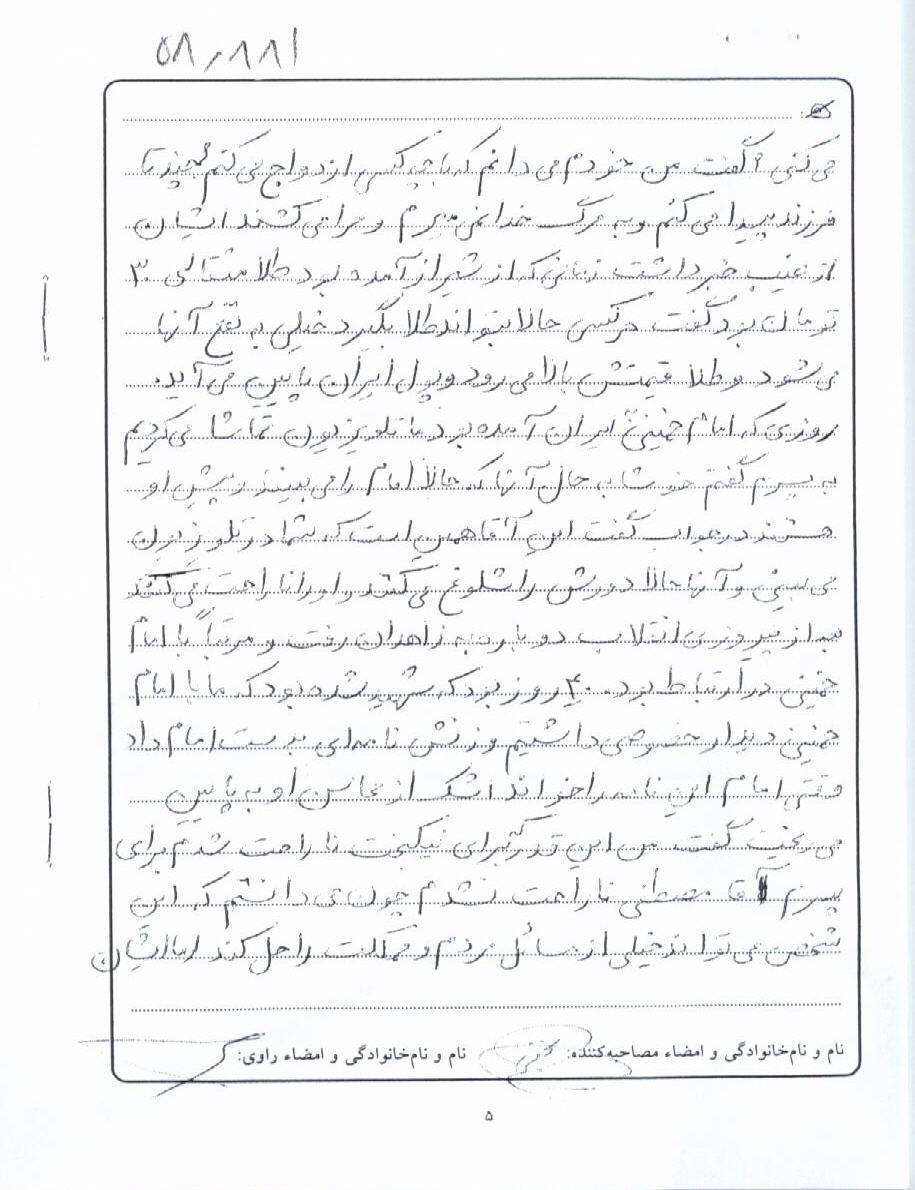 ۵۸۰۸۸۱
می کنی؟ گفت من خودم می دانم که با چه کسی ازدواج می کنم چند تا
فرزند پیدا می کنم و به مرگ خدا نمی میرم و مرا می کشند ایشان
از غیب خبر داشت زمانی که از شیراز آمده بود طلا مثقالی ۳۰
تومان بود گفت هر کسی حالا بتواند طلا بگیرد خیلی به نفع آنها
می شود و طلا قیمتش بالا می رود و پول ایران پایین می آید.
روزی که امام خمینی ایران آمده بود ما تلویزیون تماشا می کردیم
به پسرم گفتم خوشا به حال آنها که حالا امام را می بینند و پیش او
هستند در جواب گفت این آقا همین است که شما در تلویزیون
می بینی و آنها حالا دورش را شلوغ می کنند و او را ناراحت می کنند
بعد از پیروزی انقلاب دوباره به زاهدان رفت و مرتباً با امام
خمینی در ارتباط بود. ۴۰ روز بود که شهید شده بود که ما با امام
خمینی دیدار خصوصی داشتیم و زنش نامه ای بدست امام داد
وقتی امام این نامه را خواند اشک از محاسن او به پایین
می ریخت گفت من این قدر که برای نیکبخت ناراحت شدم برای
پسرم آقا مصطفی ناراحت نشدم چون می دانستم که این
شخص می تواند خیلی از مسائل مردم و مملکت را حل کند اما ایشان
نام و نام‌خانوادگی و امضاء مصاحبه‌کننده: نام و نام‌خانوادگی و امضاء راوی:
۵